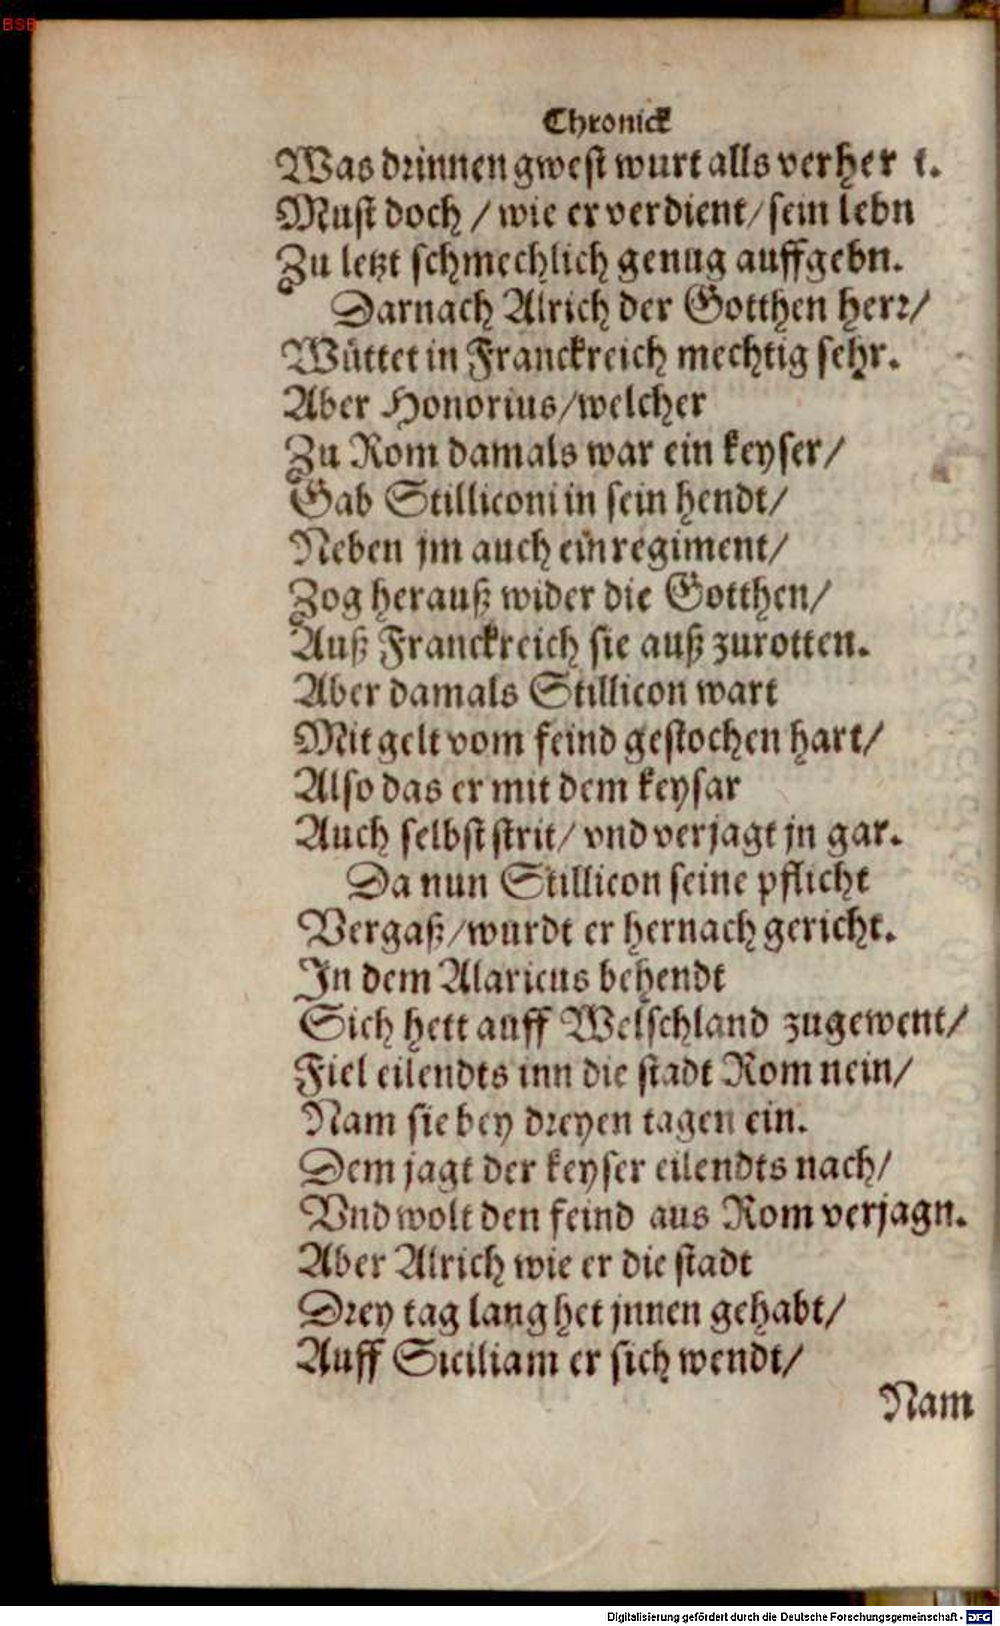 BSB
Chronick
Was drinnen gwest wurt alls verher t.
Must doch / wie er verdient / sein lebn
Zu letzt schmechlich genug auffgebn.
Darnach Alrich der Gotthen herr /
Wüttet in Franckreich mechtig sehr.
Aber Honorius / welcher
Zu Rom damals war ein keyser /
Gab Stilliconi in sein hendt /
Neben jm auch ein regiment /
Zog herauß wider die Gotthen /
Auß Franckreich sie auß zurotten.
Aber damals Stillicon wart
Mit gelt vom feind gestochen hart /
Also das er mit dem keysar
Auch selbst strit / vnd verjagt jn gar.
Da nun Stillicon seine pflicht
Vergaß / wurdt er hernach gericht.
In dem Alaricus behendt
Sich hett auff Welschland zugewent /
Fiel eilendts inn die stadt Rom nein /
Nam sie bey dreyen tagen ein.
Dem jagt der keyser eilendts nach /
Vnd wolt den feind aus Rom verjagn.
Aber Alrich wie er die stadt
Drey tag lang het jnnen gehabt /
Auff Siciliam er sich wendt /
Nam
Digitalisierung gefördert durch die Deutsche Forschungsgemeinschaft - DFG